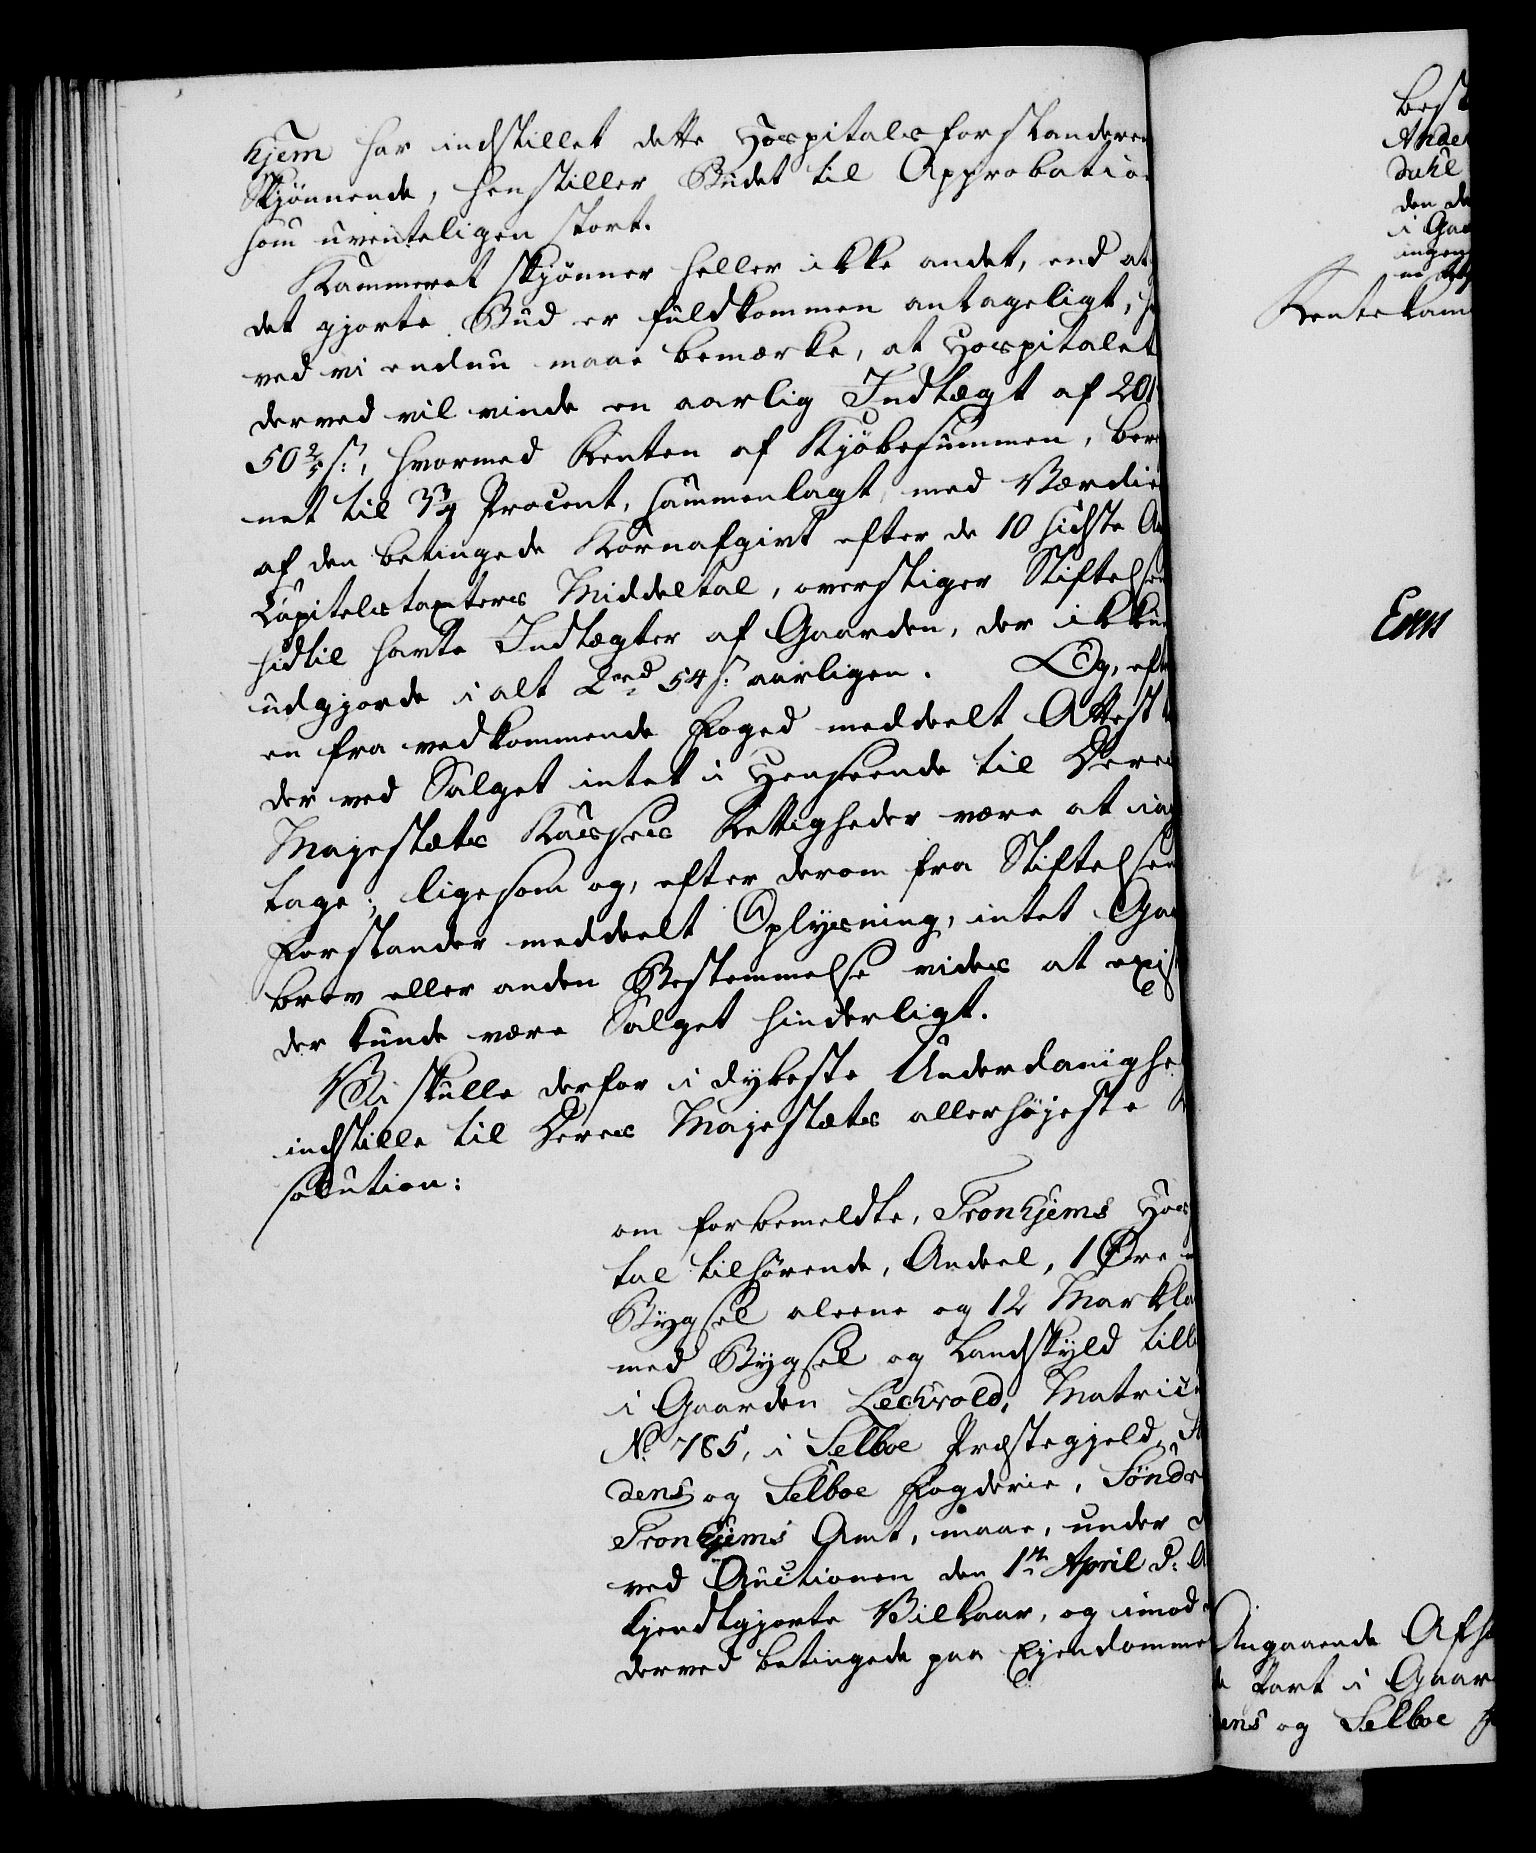 hjem har indstillet dette Hospitalsforstanderen
Skjønnende, henstiller Budet til Approbatio
som uventeligen stort.
Kammeret skjønner heller ikke andet, end at
det gjorte Bud er fuldkommen antageligt, 
ved vi endnu maae bemærke, at Hospitalet
derved vil vinde en aarlig Indtægt af 20
50 2/5 s:, hvormed Renten af Kjøbesummen, bereg
net til Procent, sammenlagt med Værdie
af den betingede Kornafgivt efter de 10 sidste A
Capitelstaxters Middeltal, overstiger Stiftelsen
hidtil havte Indtægter af Gaarden, der ikkun
udgjorde i alt 2 rd 54 s: aarligen. Og, efter
en fra vedkommende Foged meddeelt Attest
der ved Salget intet i Henseende til Deres
Majestæts Kasses Rettigheder være at iag
tage; ligesom og, efter derom fra Stiftelsen
Forstander meddeelt Oplysning, intet Ga
brev eller anden Bestemmelse vides at exist
der kunde være Salget hinderligt.
Vi skulle derfor i dybeste Underdanighe
indstille til Deres Majestæts allerhøjeste
solution:
om forbemeldte, Tronhjems Hos
tal tilhørende, Andeel, 1 Øre
Bygsel aleene og 12 Markla
med Bygsel og Landskyld till
i Gaarden Lechvold, Matricu
No 785, i Selboe Præstegjeld,
dens og Selboe Fogderie, Söndr
Tronhjems Amt, maae, under
ved Auctionen den 1te April d: A
kjendtgjorte Vilkaar, og imod
derved betingede paa Ejendomme
best
Andel
dahl
den de
i Gaa
ingen
Rentekam
Angaaende Afh
Part i Gaar
dens og Selboe